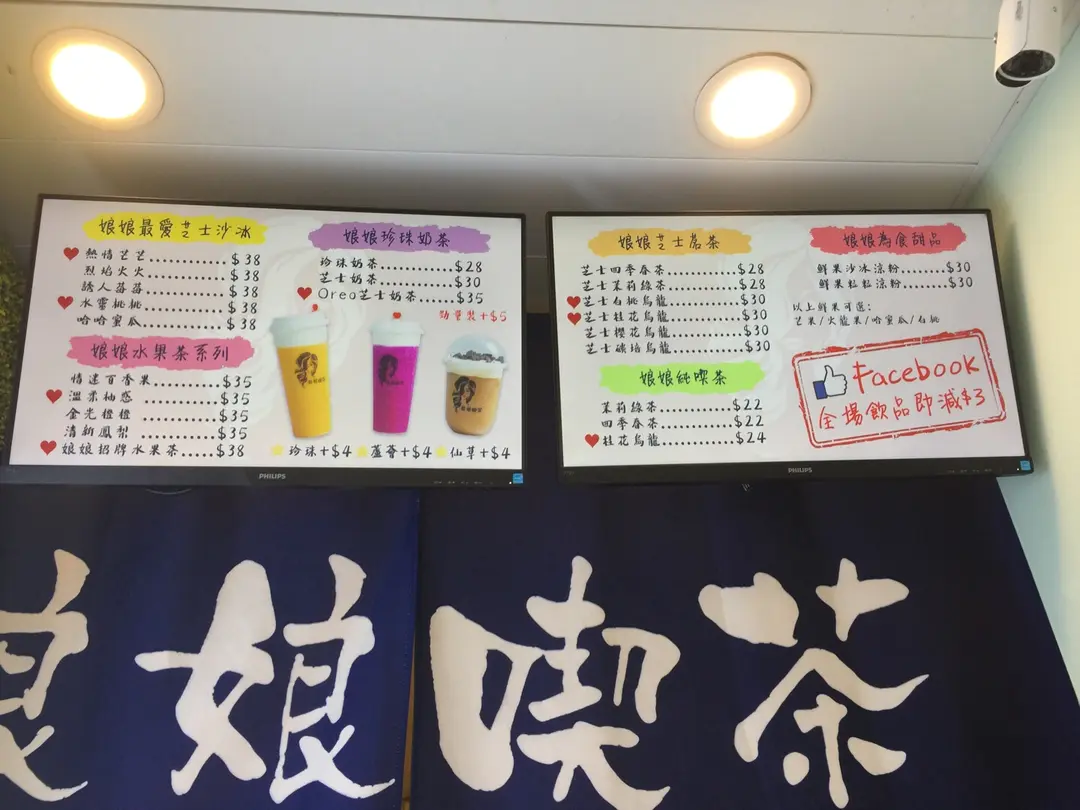 娘娘最愛芝士沙冰
熱情芒芒..............$38
烈焰火火..............$38
誘人莓莓..............$38
水蜜桃桃..............$38
哈哈蜜瓜..............$38
娘娘水果茶系列
情迷百香果..............$35
溫柔柚惑..............$35
金光橙橙..............$35
清新鳳梨..............$35
娘娘招牌水果茶.....$38
娘娘珍珠奶茶
珍珠奶茶..............$28
芝士奶茶..............$30
Oreo芝士奶茶.......$35
勁量裝+$5
珍珠+$4 蘆薈+$4 仙草+$4
PHILIPS
娘娘芝士茗茶
芝士四季春茶..........$28
芝士茉莉綠茶..........$28
芝士白桃烏龍..........$30
芝士桂花烏龍..........$30
芝士櫻花烏龍..........$30
芝士碳焙烏龍..........$30
娘娘純喫茶
茉莉綠茶..............$22
四季春茶..............$22
桂花烏龍..............$24
娘娘為食甜品
鮮果沙冰涼粉.......$30
鮮果粒粒涼粉.......$30
以上鮮果可選:
芒果/火龍果/哈蜜瓜/白桃
Facebook
全場飲品即減$3
PHILIPS
娘娘喫茶